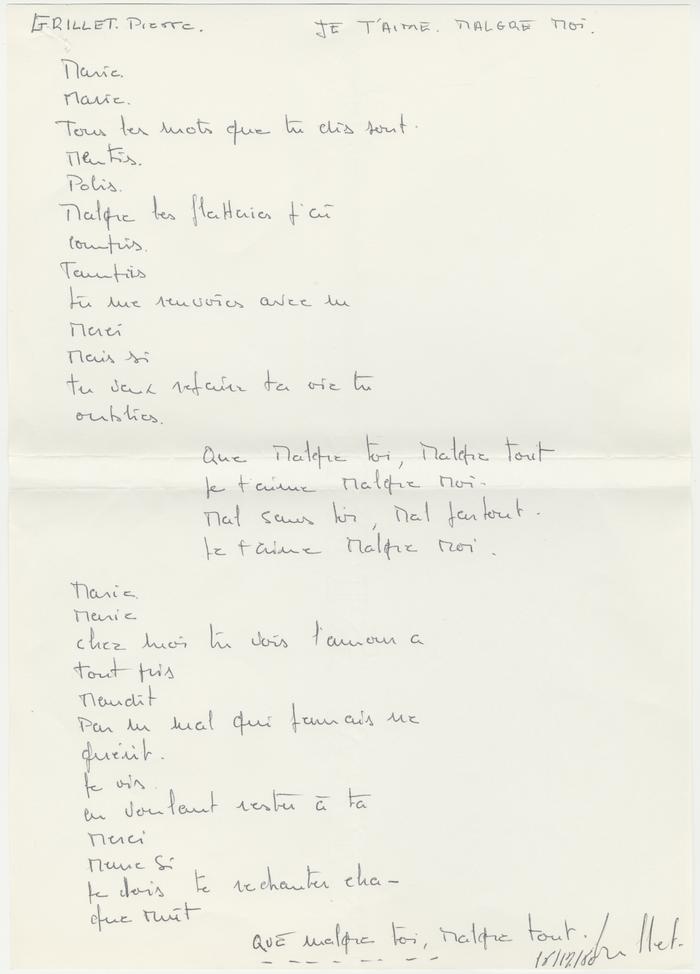 GRILLET. Pierre. JE T'AIME. MALGRÉ MOI.
Marie.
Marie.
Tous les mots que tu dis sont.
Mentis.
Polis.
Malgre les flatteries j'ai
compris.
Tant pis
tu me renvoies avec un
Merci
Mais si
tu veux refaire ta vie tu
oublies.
Que Malgre toi, Malgre tout
Je t'aime Malgre Moi.
Mal sans toi, Mal partout.
Je t'aime Malgre Moi.
Marie
Marie
chez moi tu vois l'amour a
tout pris
Maudit
Par un mal qui jamais ne
guérit.
Je vis.
en voulant rester à ta
Merci
Meme Si
Je dois te rechanter cha-
que nuit
QUE malgre toi, Malgre tout.